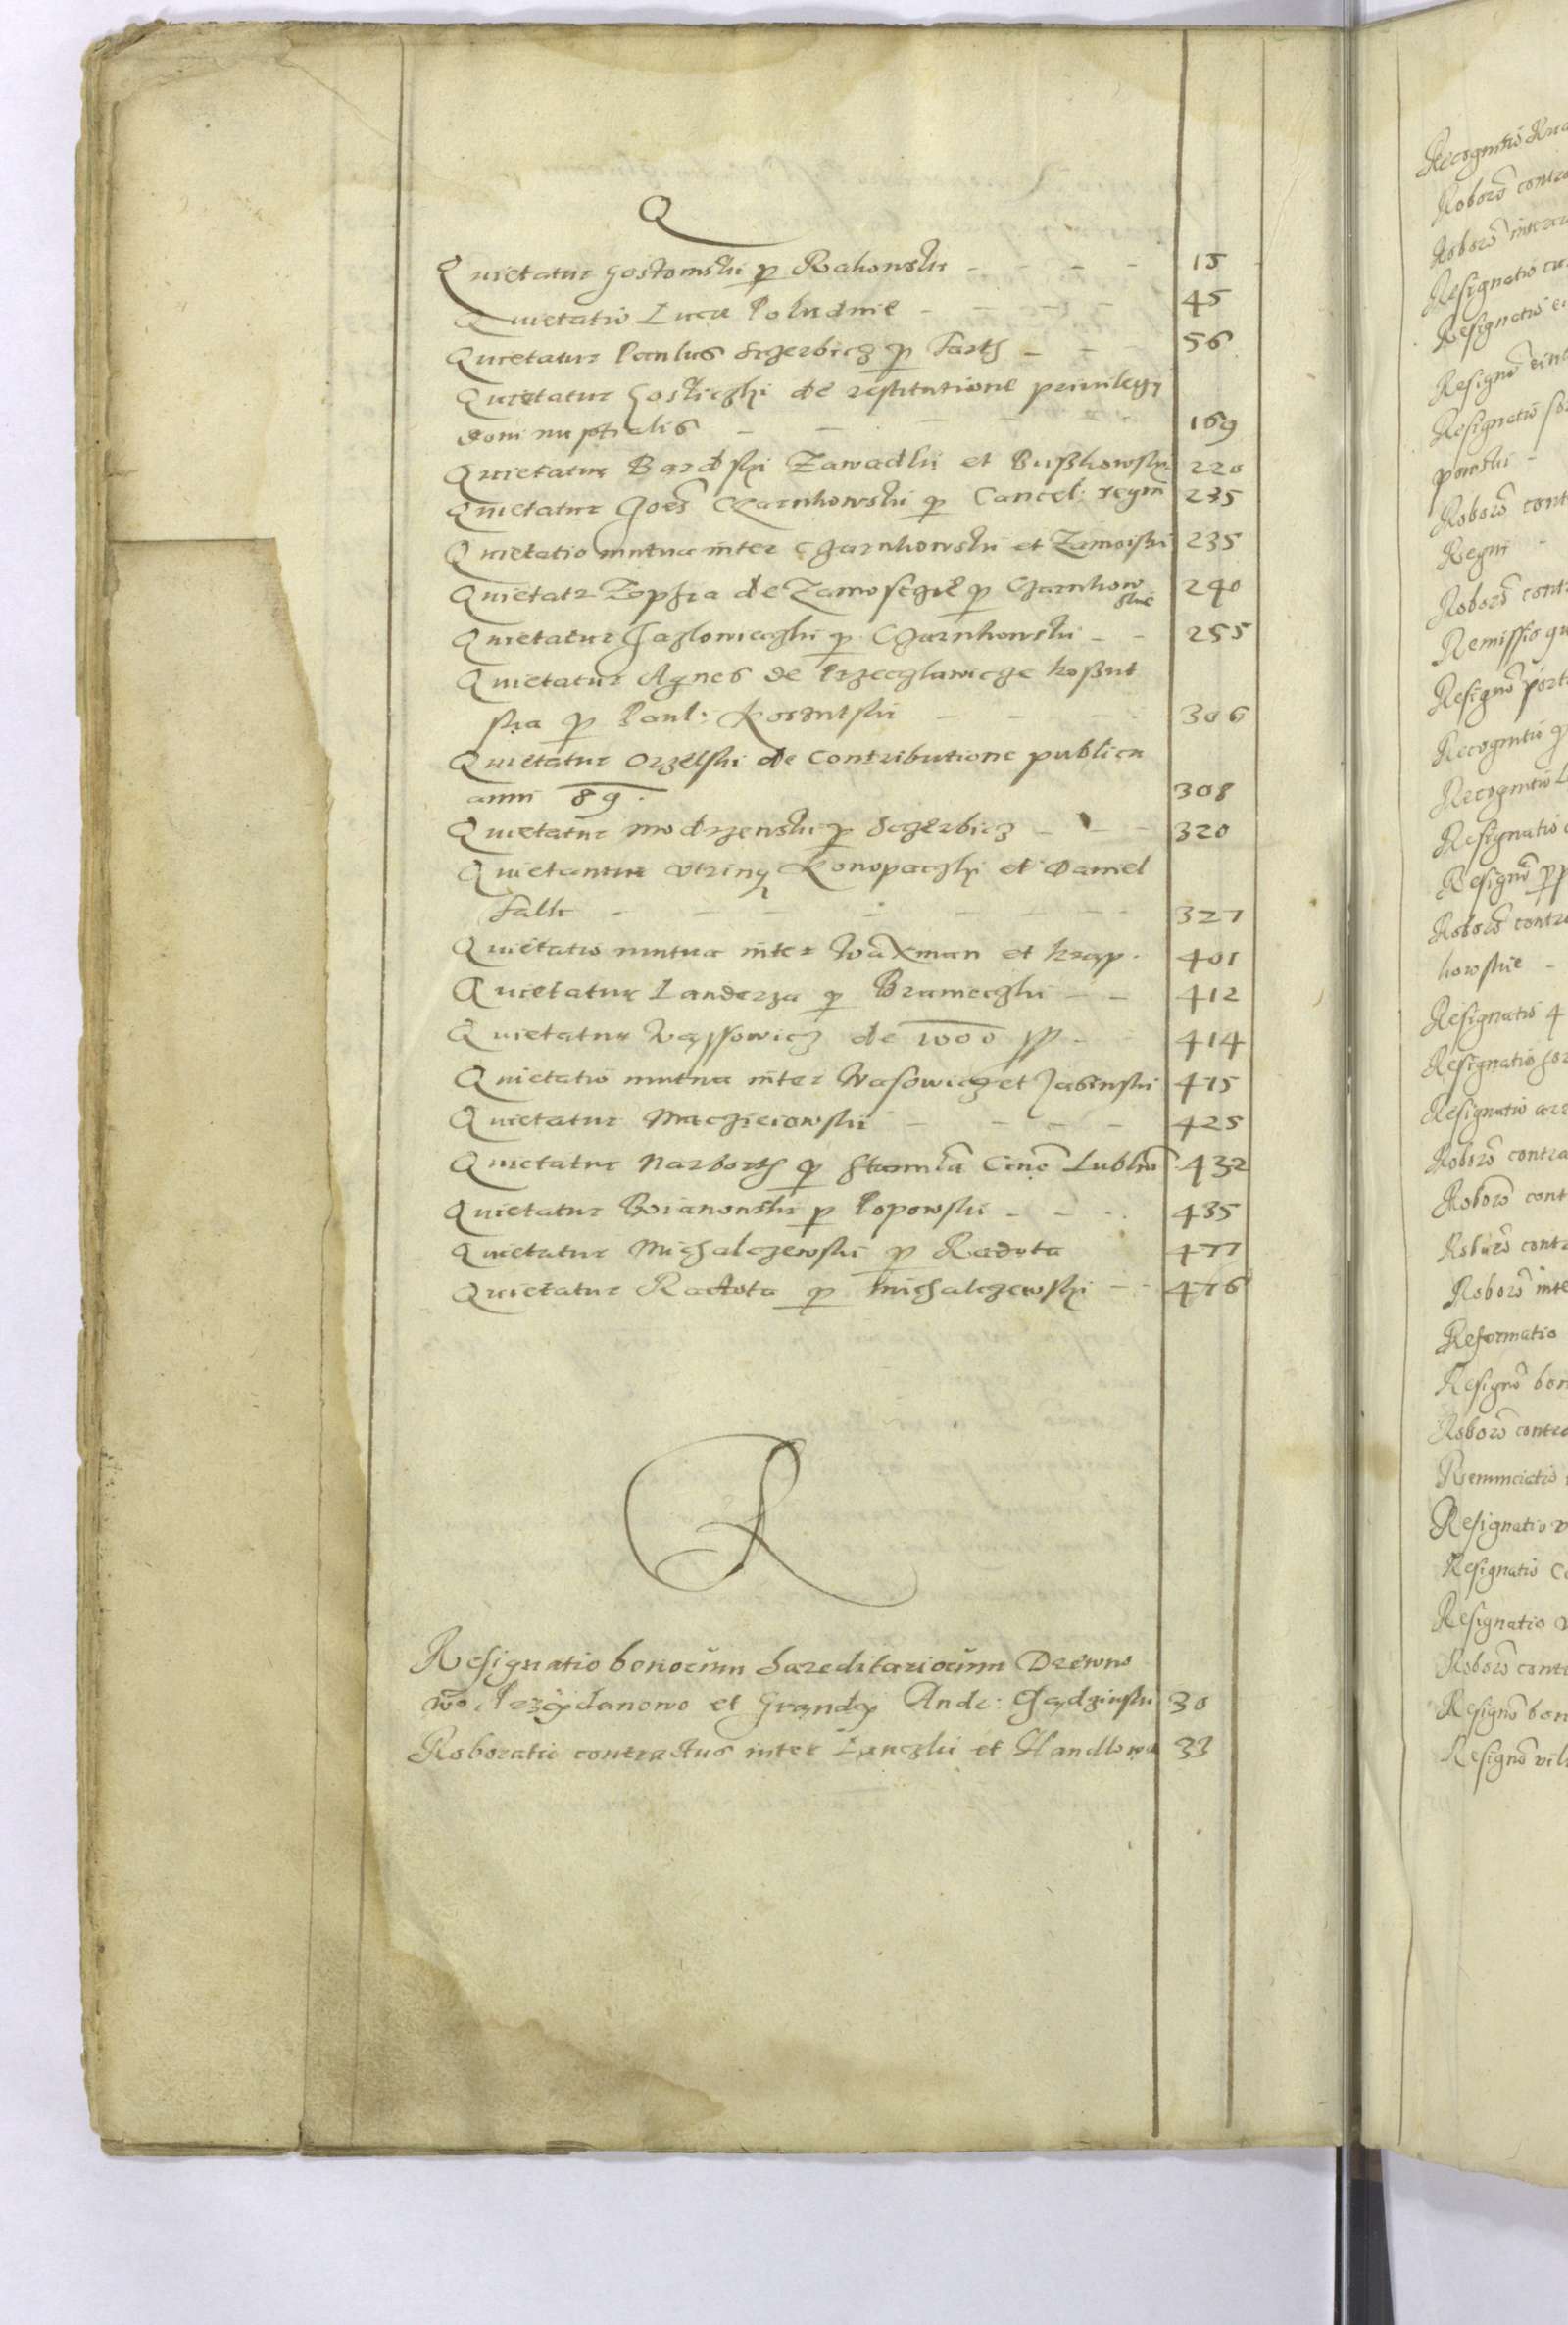 Q
Quietatur Gostomski p Rakowski - - - - 15
Quietatio Lucæ Poludnie - - - - 45
Quietatur Paulus Sczerbicz p Farth - - - 56
Quietatur Gosliczki de restitutione privilegy
doni nuptialis - - - - - 169
Quietatur Bardski Zawadski et Bußkowski 220
Quietatur Joes Czarnkowski p Cancel: regni 235
Quietatio mutua inter Czarnkowski et Zamoiski 235
Quietatr Zophia de Zamoscze p Czarnkowskie 240
Quietatur Jazlowieczki p Czarnkowski - - 255
Quietatur Agnes de Przeczlawicze koßut
ska p Paul: Kossutski - - - 306
Quietatur Orzelski de contributione publica
anni 89. 308
Quietatur Modrzewski p Sczerbicz - - - 320
Quietantur utrinq Konopaczki et Daniel
Falk - - - - - - - 327
Quietatio mutua inter Waxman et krap. 401
Quietatur Landerza p Branieczki - - 412
Quietatur Wassowicz de 1000 - 414
Quietatio mutua inter Wasowicz et Jabinski 415
Quietatur Maczieiowski - - - - 425
Quietatur Narborth p Stanisla Lublin 432
Quietatur Boianowski p Popowski - - - 435
Quietatur Michalczewski p Radota 477
Quietatur Radota p Michalczewski - - 476
R
Resignatio bonorum hæreditariorum Drewno
wo Przezdanowo et Grandy Andr: Gadzinski 30
Roboratio contractus inter Lanczki et Handlowa 33
Recognitio
Roboro contra
Roboro inter
Resignatio
Resignatio
Resigno
Resignatio
powski -
Roboro cont
Regni -
Roboro cont
Remissio
Resigno
Recognitio
Recognitio
Resignatio
Resigno
Roboro contra
kowskie -
Resignatio 4
Resignatio
Resignatio
Roboro contra
Roboro cont
Roboro contr
Roboro inte
Reformatio
Resigno bon
Roboro contra
Renunciatio
Resignatio
Resignatio
Resignatio
Roboro contr
Resigno bon
Resigno